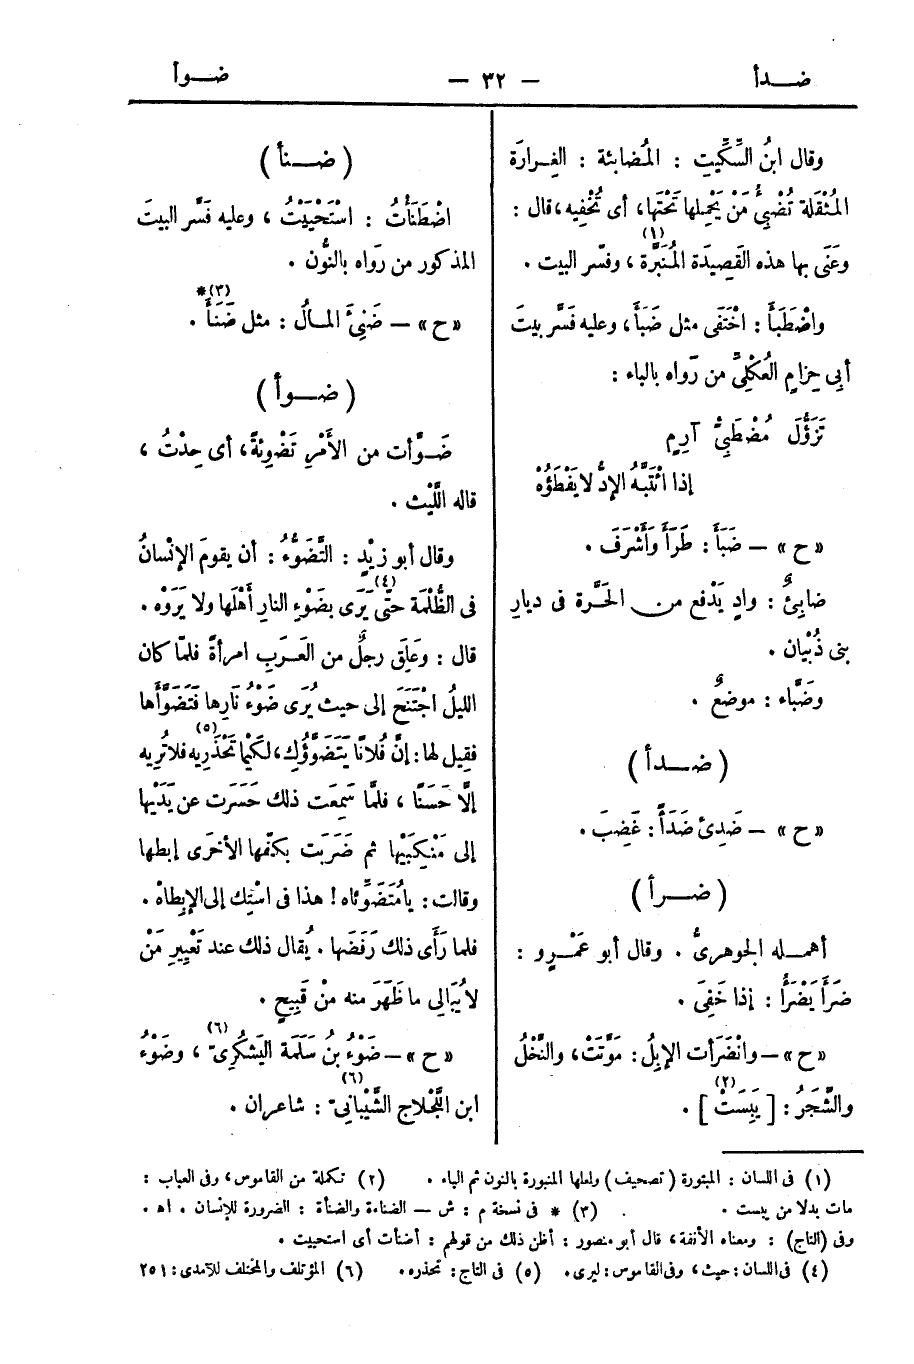 ضــدأ
— ٣٢ —
ضــوأ
وقال ابنُ السِّكِّيتِ : المُضابئة : الغِــرارَة
المُثْقَلة تُضْبِئُ مَنْ يَحْمِلها تَحْتَها، أى تُخْفِيه، قال :
وعَنَى بها هذه القَصِيدَة المُنَبَّرة (١) ، وفسّر البيت .
واضْطَبَأَ : اخْتَفَى مثل ضَبَأَ، وعليه فَسَّر بيتَ
أبى حِزامٍ العُكْلِىِّ من رَواه بالباء :
تَزَؤُّلَ مُضْطَبِئٍ آرِمٍ
إذا ائْتَبَّهُ الإدُّ لا يَفْطَؤُهْ
«ح» — ضَبَأَ : طَرَأَ وأَشْرَفَ .
ضابِئٌ : وادٍ يَدْفع من الحَرَّة فى ديارِ
بنى ذُبْيان .
وضَبَّاء : موضعٌ .
( ضــدأ )
«ح» — ضَدِئَ ضَدَأً : غَضِبَ .
( ضــرأ )
أهمــله الجوهرىُّ . وقال أبو عَمْرٍو :
ضَرَأَ يَضْرَأُ : إذا خَفِىَ .
«ح» — وانْضَرَأَت الإبِلُ : مَوَّتَتْ، والنَّخْلُ
والشَّجَرُ : [ يَبِسَتْ ] (٢) .
( ضــنأ )
اضْطَنَأْتُ : اسْتَحْيَيْتُ ، وعليه فَسَّر البيتَ
المذكور من رَواه بالنُّون .
«ح» — ضَنِئَ المــالُ : مثل ضَنَأَ (٣)* .
( ضــوأ )
ضَــوَّأت من الأَمْرِ تَضْوِئَةً، أى حِدْتُ ،
قاله اللَّيْث .
وقال أبو زيْدٍ : التَّضَوُّءُ : أن يقومَ الإنْسانُ
فى الظُّلْمَة حتَّى (٤) يَرَى بضَوْءِ النارِ أَهْلَها ولا يَرَوْه .
قال : وعَلِقَ رجلٌ من العَــرَبِ امرأةً فلمّا كان
الليلُ اجْتَنَحَ إلى حيث يُرَى ضَوْءُ نَارِها فَتَضَوَّأَها
فقِيل لها : إنَّ فُلانًا يَتَضَوَّؤُكِ، لكَيْما تَحْذَرِيه (٥) فلا تُرِيه
إلَّا حَسَنًا ، فلمَّا سَمِعَت ذلك حَسَرَت عن يَدَيْها
إلى مَنْكِبَيْها ثم ضَرَبَت بكفّها الأخرَى إبطها
وقالت : يا مُتَضَوِّئاه ! هذا فى اسْتِك إلى الإبطاهْ .
فلما رَأَى ذلك رَفَضَها . يُقال ذلك عند تَعْيِيرِ مَنْ
لا يُبَالِى ما ظَهَرَ منه مِنْ قَبِيحٍ .
«ح» — ضَوْءُ بنُ سَلَمَة اليَشْكُرِىّ (٦) ، وضَوْءُ
ابن اللَّجْلاج الشَّيْبانىّ (٦) : شاعران .
(١) فى اللسان : المبثورة ( تصحيف ) ولعلها المنبورة بالنون ثم الباء . (٢) تكملة من القاموس، وفى العباب :
مات بدلا من يبست . (٣) * فى نسخة م : ش — الضناءة والضنأة : الضرورة للإنسان . اه .
وفى (التاج) : ومعناه الأنفة، قال أبو منصور : أظن ذلك من قولهم : أضنأت أى استحييت .
(٤) فى اللسان : حيث، وفى القاموس : ليرى . (٥) فى التاج : تحذره . (٦) المؤتلف والمختلف للآمدى : ٢٥١